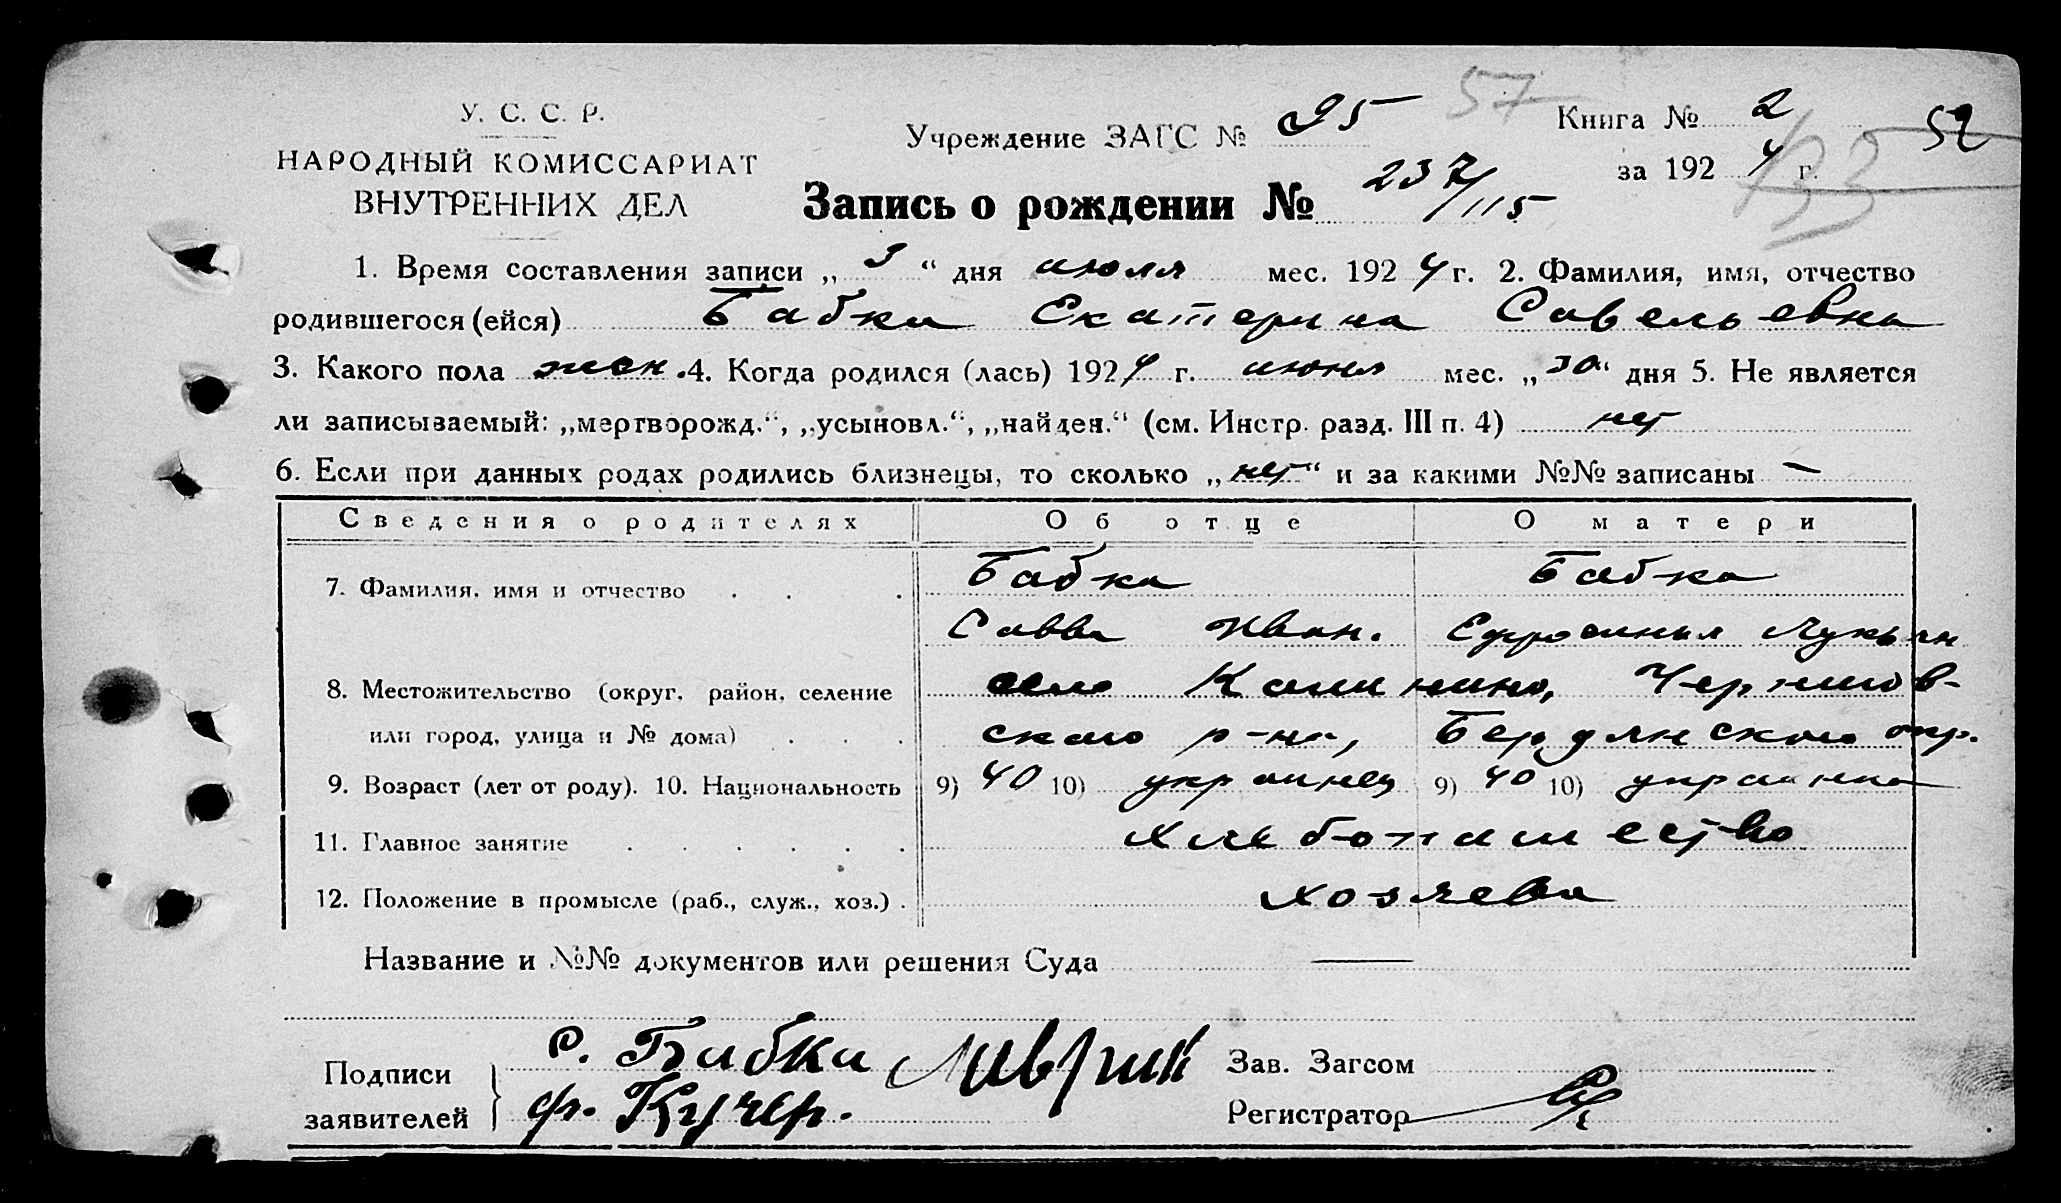 У. С. С. Р.
НАРОДНЫЙ КОМИССАРИАТ
ВНУТРЕННИХ ДЕЛ
Учреждение ЗАГС № 95 57
Книга № 2 52
за 192 4 г. 133
Запись о рождении № 237/115
1. Время составления записи „ 3 “ дня июля мес. 192 4 г. 2. Фамилия, имя, отчество
родившегося (ейся) Бабка Екатерина Савельевна
3. Какого пола жен. 4. Когда родился (лась) 192 4 г. июня мес. „ 30 “ дня 5. Не является
ли записываемый: „мертворожд.“, „усыновл.“, „найден.“ (см. Инстр. разд. III п. 4) нет
6. Если при данных родах родились близнецы, то сколько „ нет “ и за какими №№ записаны —
Сведения о родителях Об отце О матери
7. Фамилия, имя и отчество . . . Бабка Бабка
Савва Иван. Ефросиния Лукьян
8. Местожительство (округ, район, селение село Калинино, Чернигов-
или город, улица и № дома) . . . ского р-на, Бердянского окр.
9. Возраст (лет от роду). 10. Национальность 9) 40 10) украинец 9) 40 10) украинка
11. Главное занятие . . . . . . хлебопашество
12. Положение в промысле (раб., служ., хоз.) . хозяева
Название и №№ документов или решения Суда —
Подписи
заявителей
С. Бабка
ф. Кучер.
Зав. Загсом
Регистратор